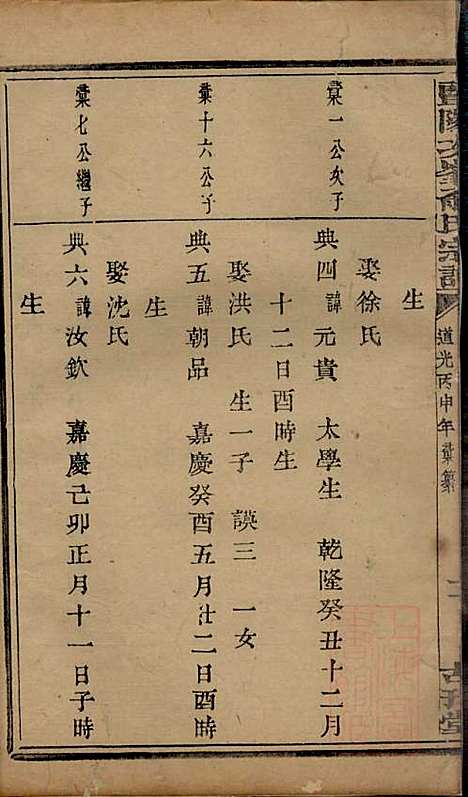 道光丙申年彙纂
生
娶徐氏
棠一公次子
典四諱元貴 太學生 乾隆癸丑十二月
十二日酉時生
娶洪氏 生一子 謨三 一女
棠十六公子
典五諱朝品 嘉慶癸酉五月廿二日酉時
生
娶沈氏
棠七公繼子
典六諱汝欽 嘉慶己卯正月十一日子時
生